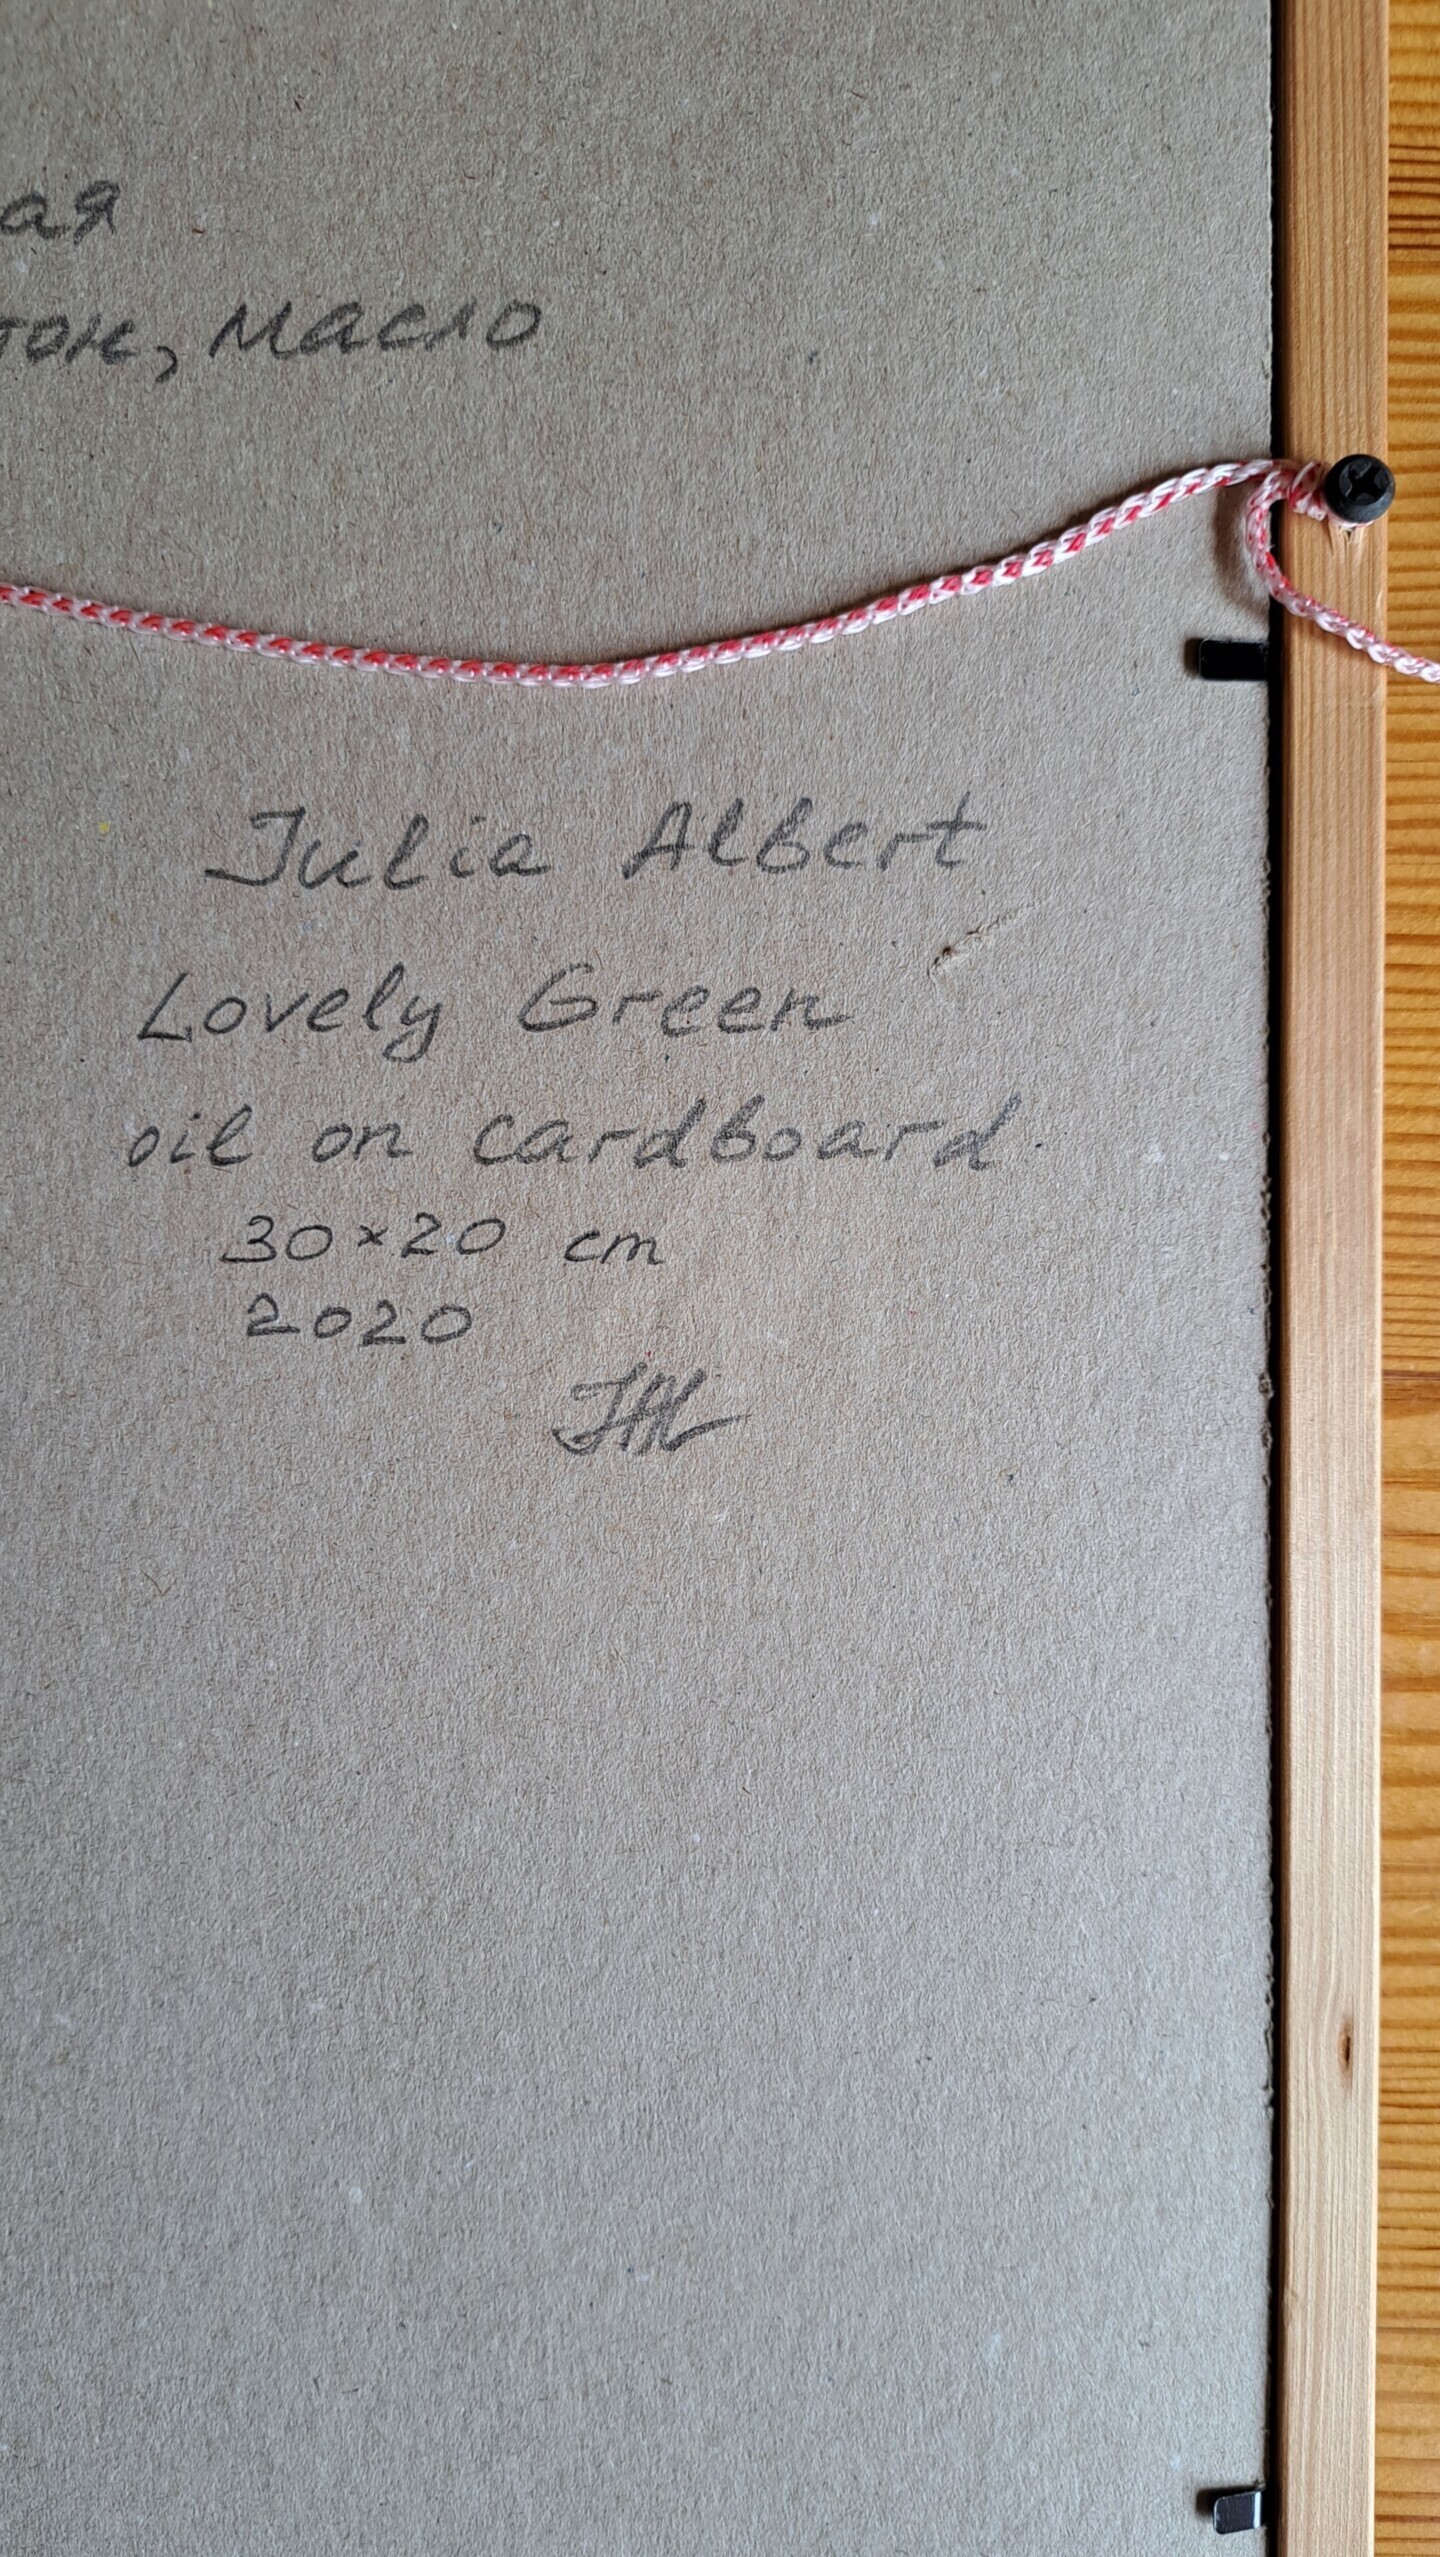 ая
тон, масло
Julia Albert
Lovely Green
oil on cardboard
30×20 cm
2020